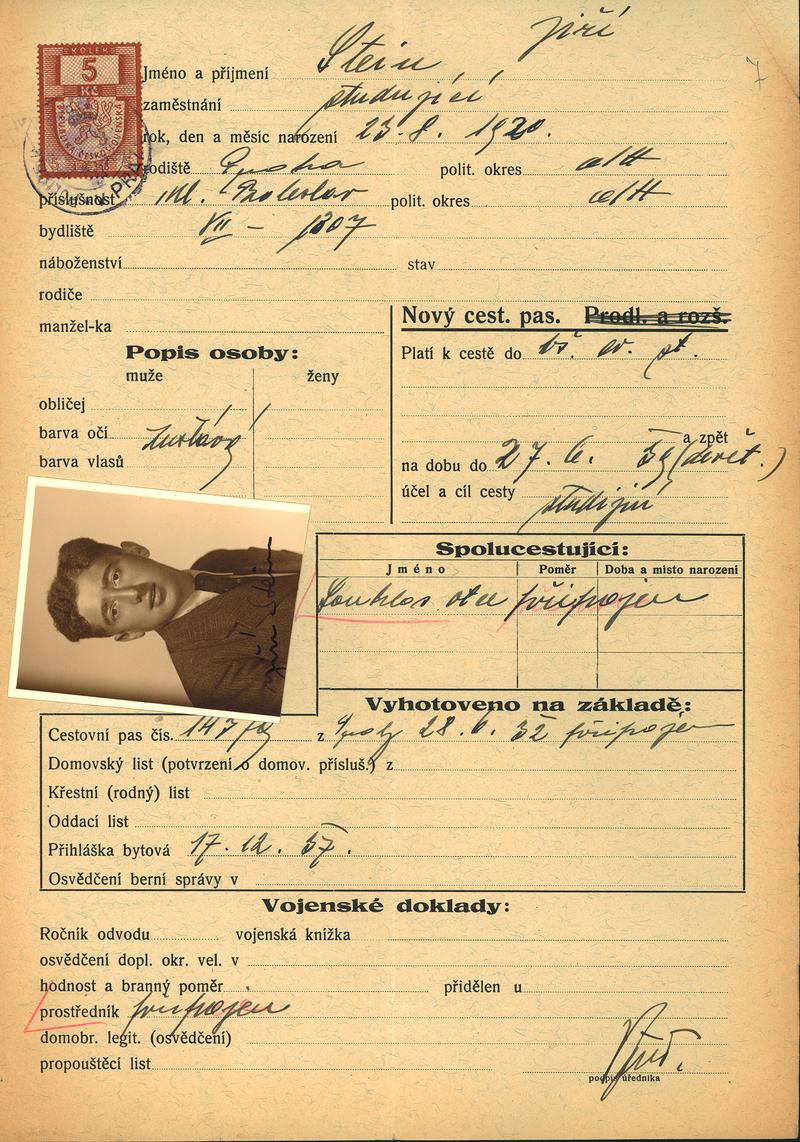 KOLEK
5
Kč
PRA
Jméno a příjmení Stein Jiří
zaměstnání studující
rok, den a měsíc narození 23. 8. 1920.
rodiště Praha polit. okres
příslušnost Ml. Boleslav polit. okres
bydliště VII – 1307
náboženství stav
rodiče
manžel-ka
Nový cest. pas. Prodl. a rozš.
Platí k cestě do vš. ev. st.
a zpět
na dobu do 27. 6. (devět.)
účel a cíl cesty studijní
Popis osoby:
muže ženy
obličej
barva očí
barva vlasů
Jiří Stein
Spolucestující:
Jméno Poměr Doba a místo narození
Souhlas otce připojen
Vyhotoveno na základě:
Cestovní pas čís. z 28. 6. 32 připojen
Domovský list (potvrzení o domov. přísluš.) z
Křestní (rodný) list
Oddací list
Přihláška bytová 17. 12. 37.
Osvědčení berní správy v
Vojenské doklady:
Ročník odvodu vojenská knížka
osvědčení dopl. okr. vel. v
hodnost a branný poměr přidělen u
prostředník připojen
domobr. legit. (osvědčení)
propouštěcí list
podpis úředníka
7